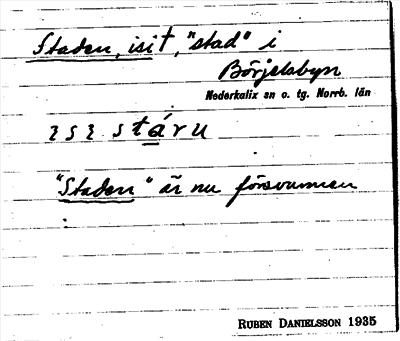 Staden, isit, "stad" i
Börjelsbyn
Nederkalix sn o. tg. Norrb. län
"Staden" är nu försvunnen
RUBEN DANIELSSON 1935